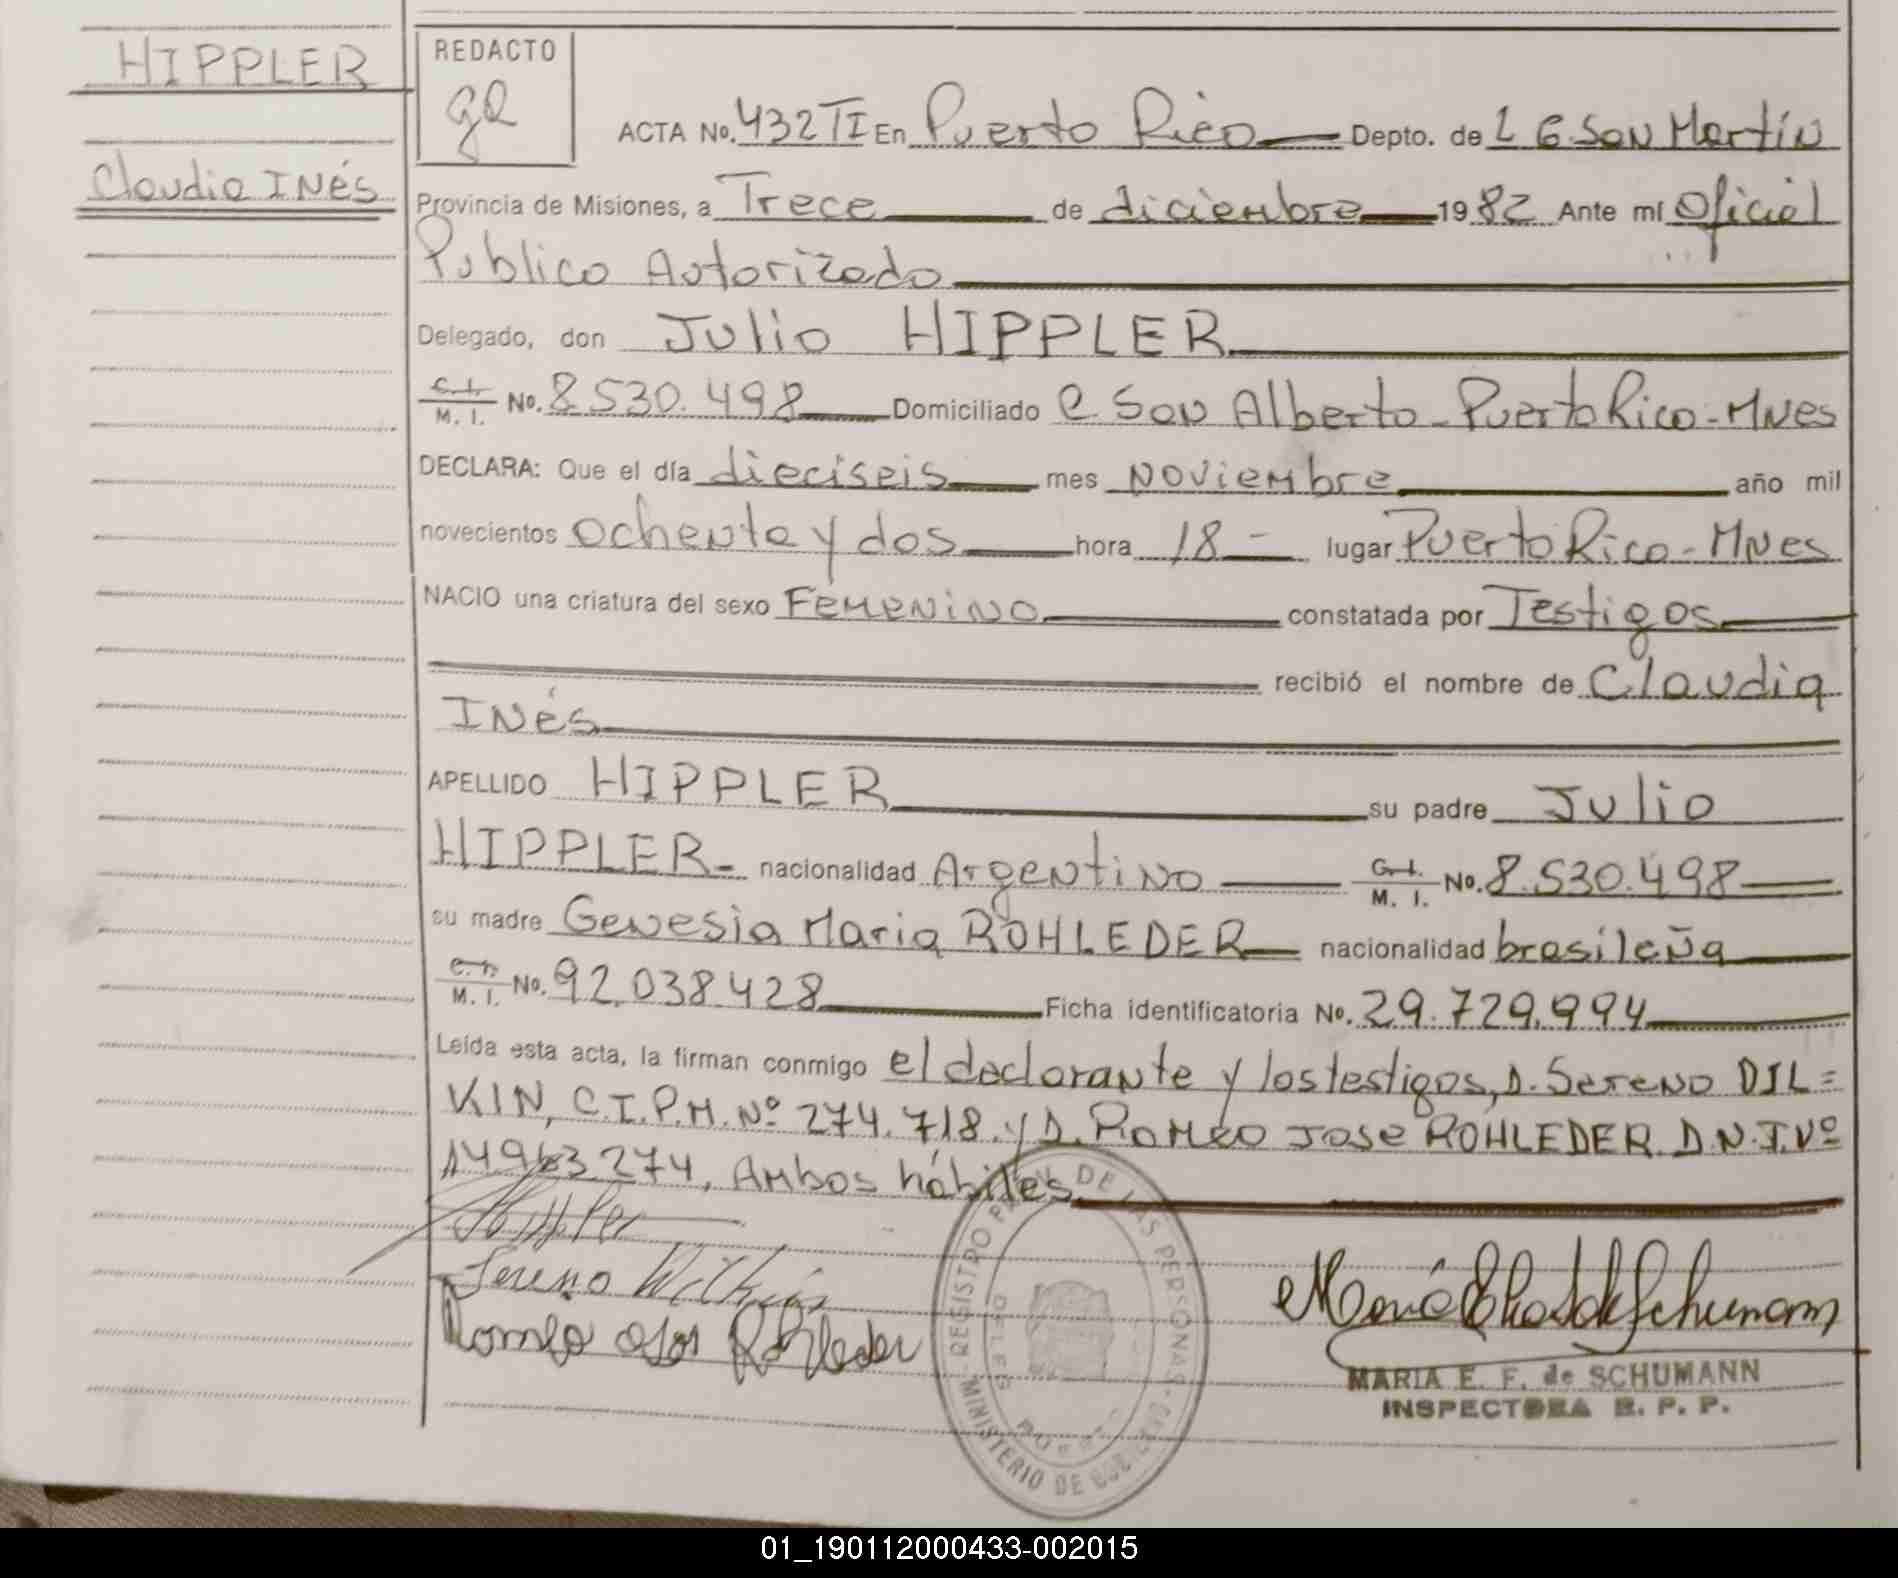 HIPPLER
Claudia INés
REDACTO
ACTA No. 432 TI En Puerto Rico Depto. de L G. San Martín
Provincia de Misiones, a Trece de diciembre 1982 Ante mí Oficial
Publico Autorizado
Delegado, don Julio HIPPLER
C. I. / M. I. No. 8.530.498 Domiciliado C. San Alberto - Puerto Rico - Mnes
DECLARA: Que el día dieciseis mes noviembre año mil
novecientos ochenta y dos hora 18 - lugar Puerto Rico - Mnes
NACIO una criatura del sexo Femenino constatada por Testigos
recibió el nombre de Claudia
INés
APELLIDO HIPPLER su padre Julio
HIPPLER - nacionalidad Argentino C. I. / M. I. No. 8.530.498
su madre Genesia Maria ROHLEDER nacionalidad brasileña
C. I. / M. I. No. 92.038.428 Ficha identificatoria No. 29.729.994
Leída esta acta, la firman conmigo el declarante y los testigos, D. Sereno DIL=
KIN, C.I.P.M. Nº 274.718. y D. Romeo Jose ROHLEDER. D.N.I. Nº
14963274, Ambos hábiles
Hippler
Sereno Wilkin
Romeo Rohleder
REGISTRO PROV. DE LAS PERSONAS
MINISTERIO DE GOB.
MARIA E. F. de SCHUMANN
INSPECTORA R. P. P.
01_190112000433-002015